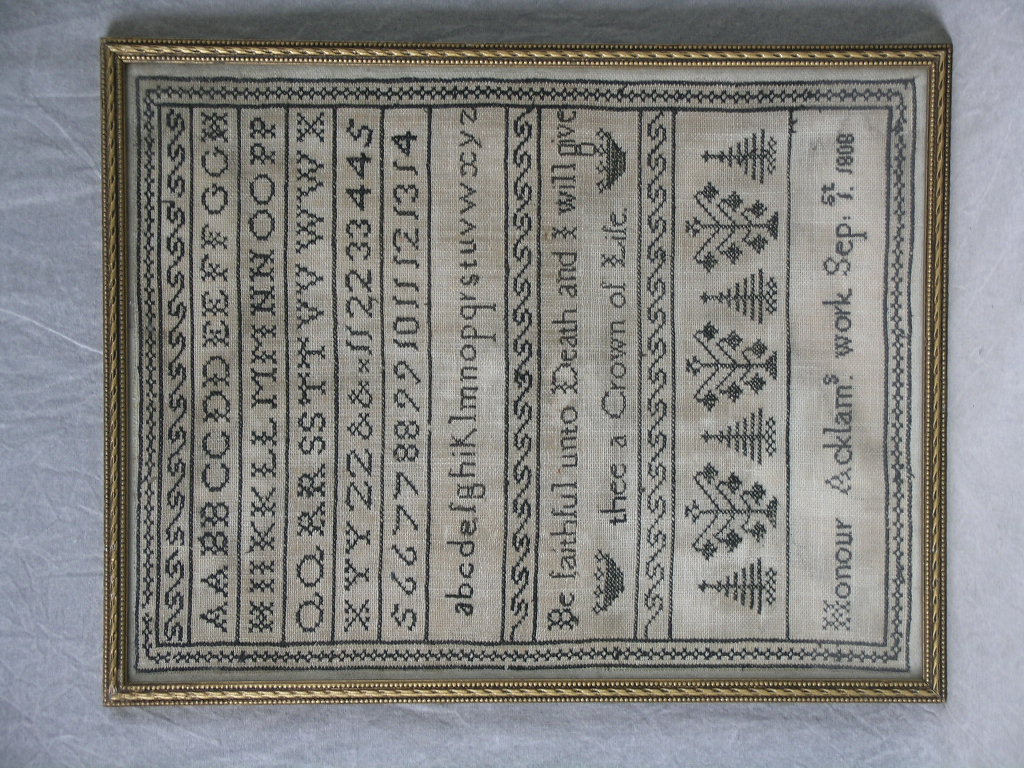 AABBCCDDEEFFGGH
HIIKKLLMMNNOOPP
QQRRSSTTVVWWX
XYYZZ&&×112233445
566778899101112 13 14
abcdefghiKlmnopqrstuvwxyz
Be faithful unto Death and I will give
thee a Crown of Life.
Honour Acklams. work Sep. 1st. 1808